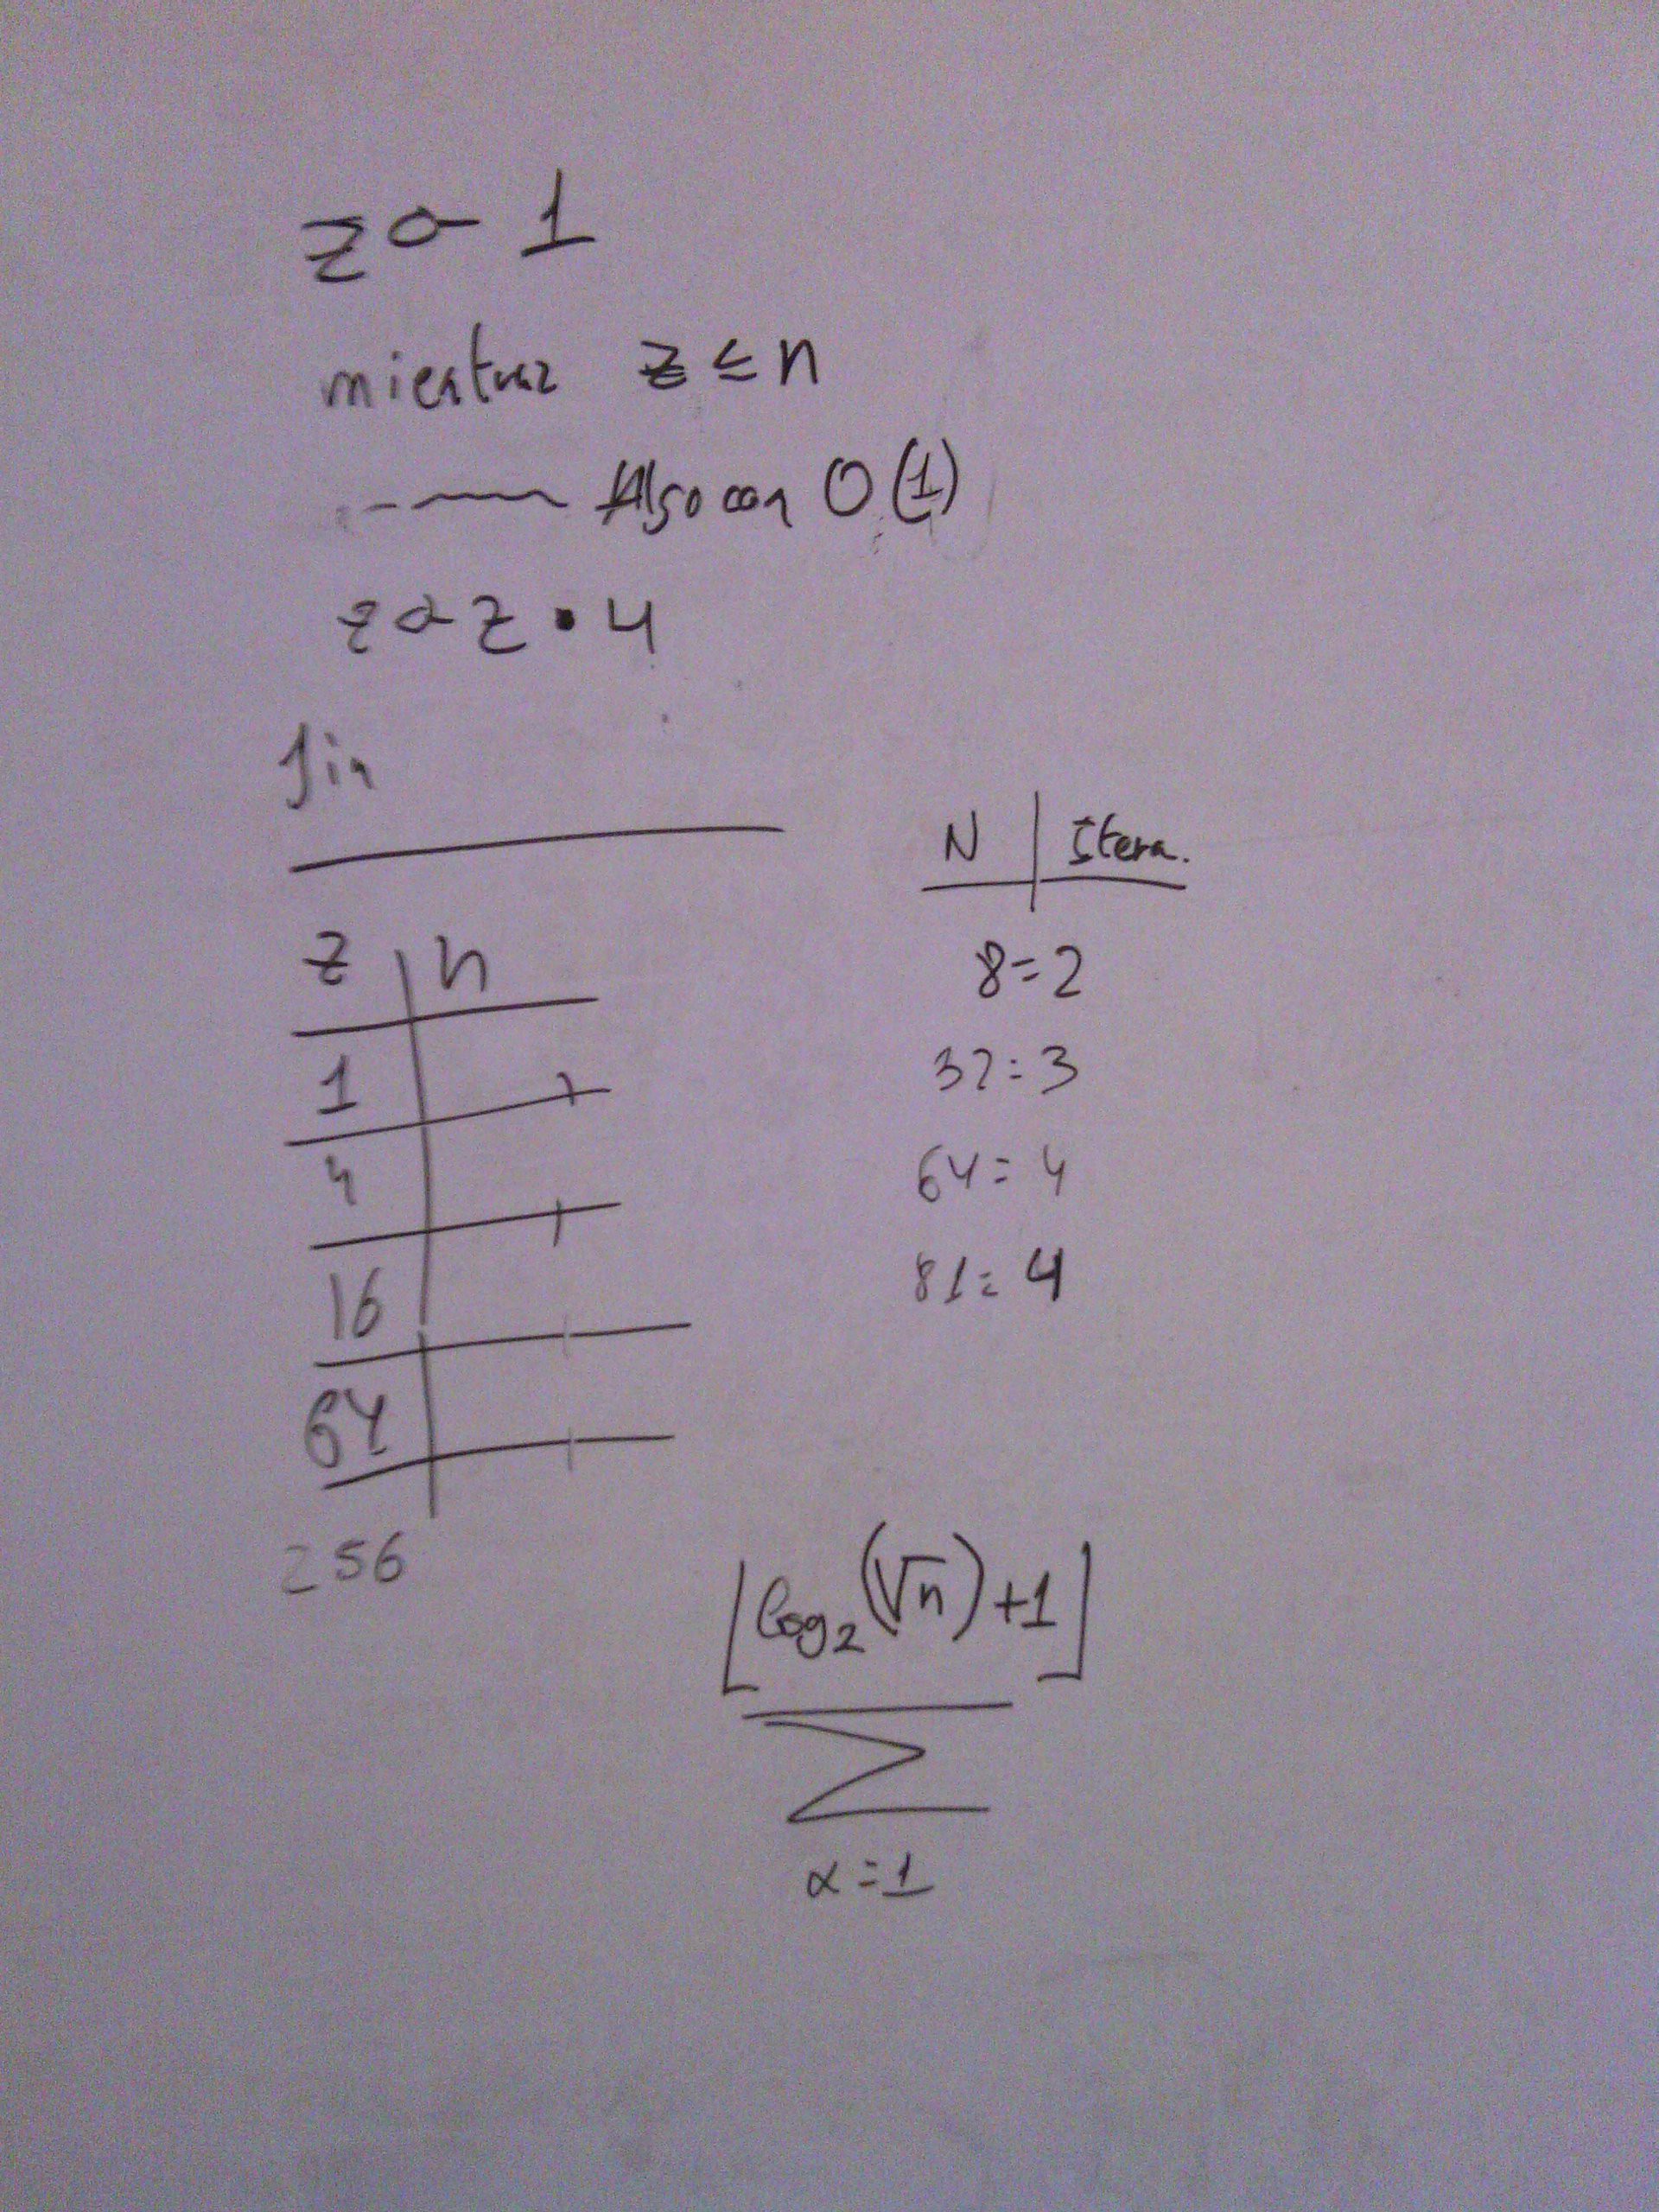 z ← 1
mientras z ≤ n
Algo con O(1)
z ← z • 4
fin
z | n
1
4
16
64
256
N | Itera.
8=2
32=3
64=4
81=4
⌊log₂(√n)+1⌋
∑
α=1